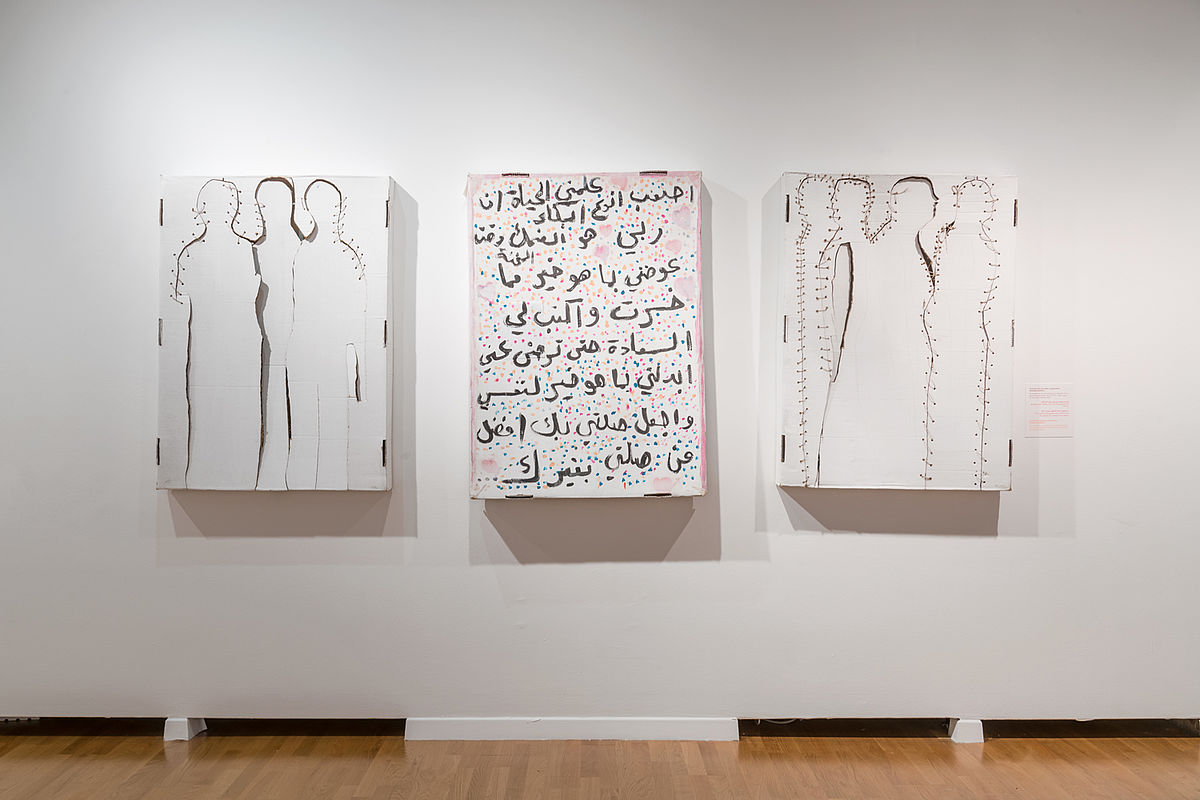 علمتني الحياة ان
اصعب انوع البكاء
ربي هو الضحك وقت
المحنة
عوضني بما هو خير مما
خسرت واكتب لي
السعادة حتى ترضى عني
ابدلني بما هو خير لنفسي
واجعل صلتي بك افضل
من صلتي بغيرك...